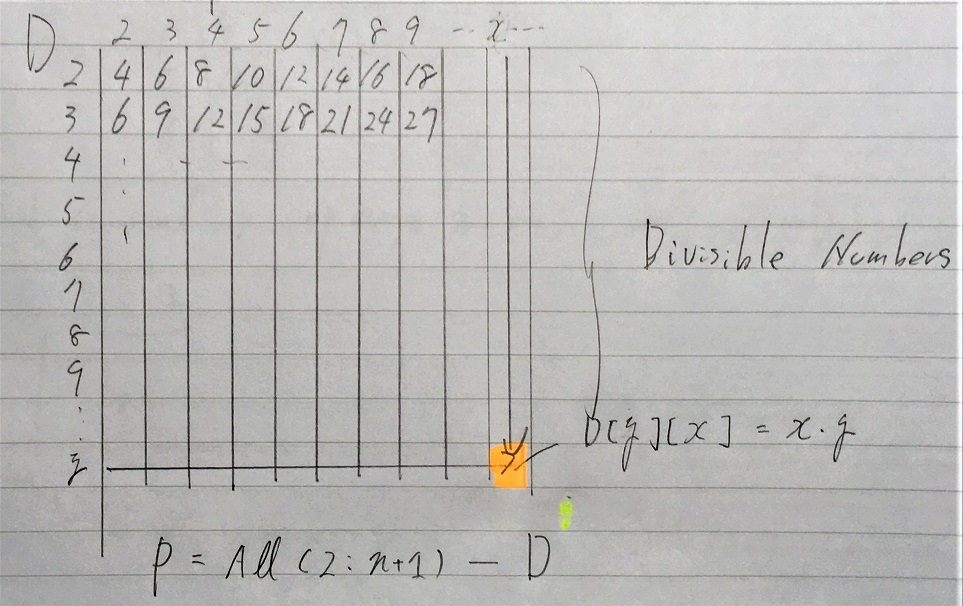 D 2 3 4 5 6 7 8 9 ... x ...
2 4 6 8 10 12 14 16 18
3 6 9 12 15 18 21 24 27
4
5
6
7
8
9
Divisible Numbers
D[y][x] = x · y
y
P = All (2:n+1) — D